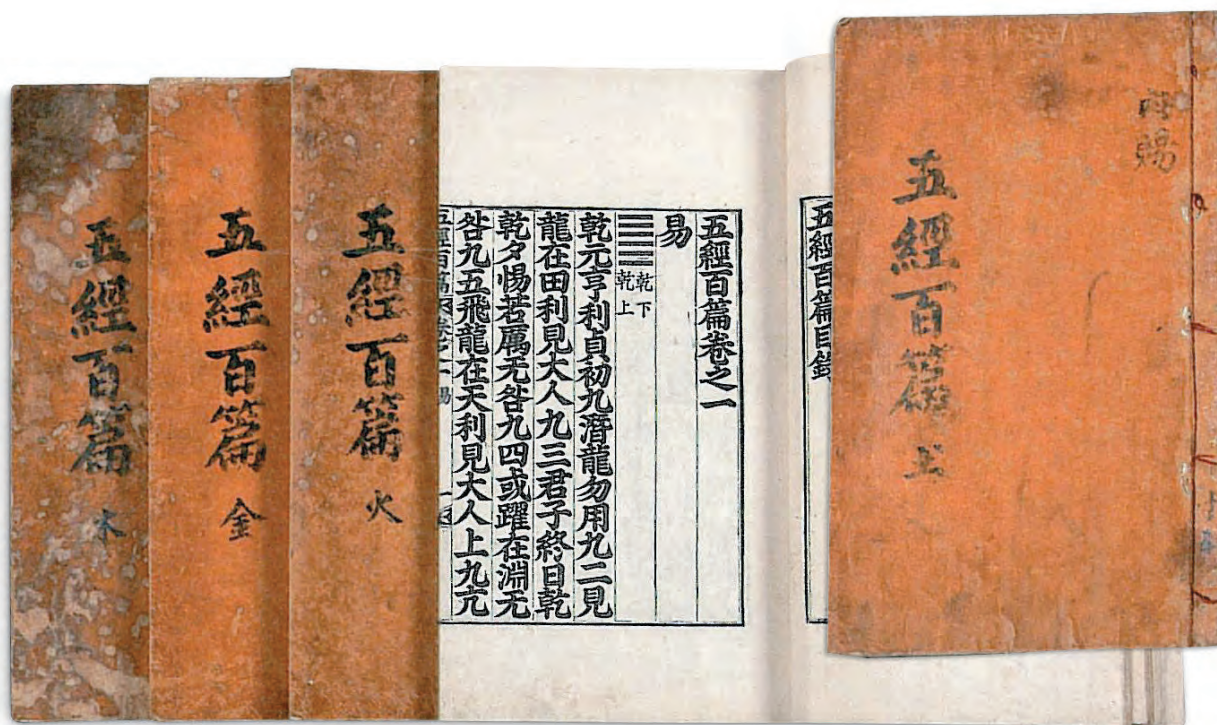 內賜
五經百篇 土
五經百篇目錄
五經百篇卷之一
易
乾下
乾上
乾元亨利貞初九潛龍勿用九二見
龍在田利見大人九三君子終日乾
乾夕惕若厲无咎九四或躍在淵无
咎九五飛龍在天利見大人上九亢
五經百篇 卷之一 易 一
五經百篇 火
五經百篇 金
五經百篇 木